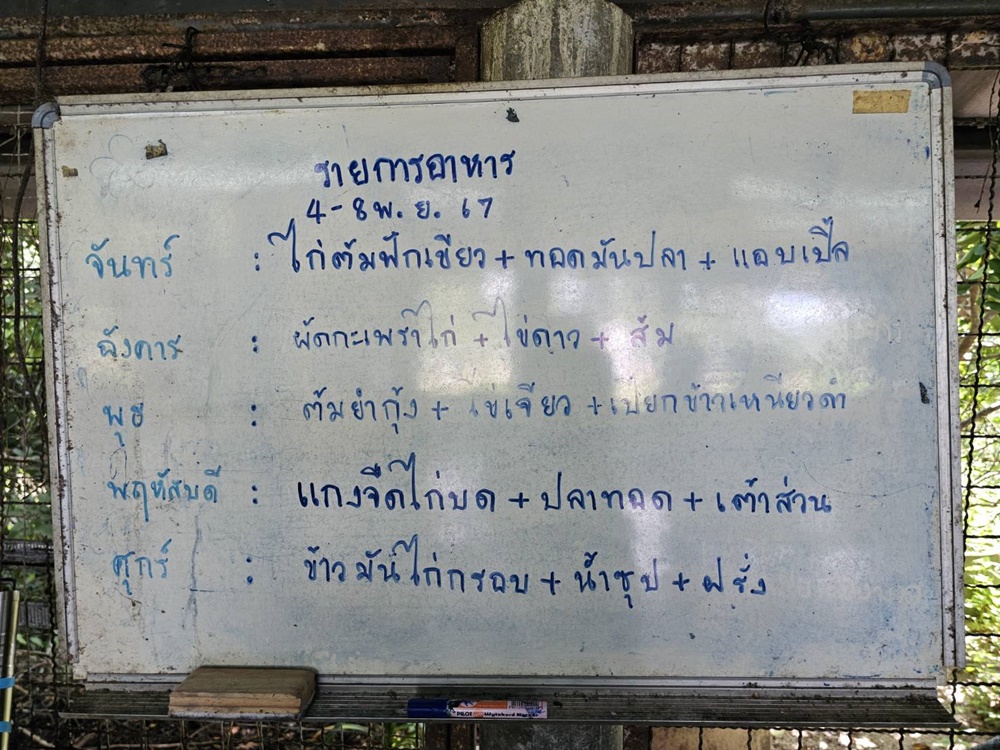 รายการอาหาร
4-8 พ.ย. 67
จันทร์ : ไก่ต้มฟักเขียว + ทอดมันปลา + แอบเปิ้ล
อังคาร : ผัดกะเพราไก่ + ไข่ดาว + ส้ม
พุธ : ต้มยำกุ้ง + ไข่เจียว + เปียกข้าวเหนียวดำ
พฤหัสบดี : แกงจืดไก่บด + ปลาทอด + เต้าส่วน
ศุกร์ : ข้าวมันไก่กรอบ + น้ำซุป + ฝรั่ง
PILOT